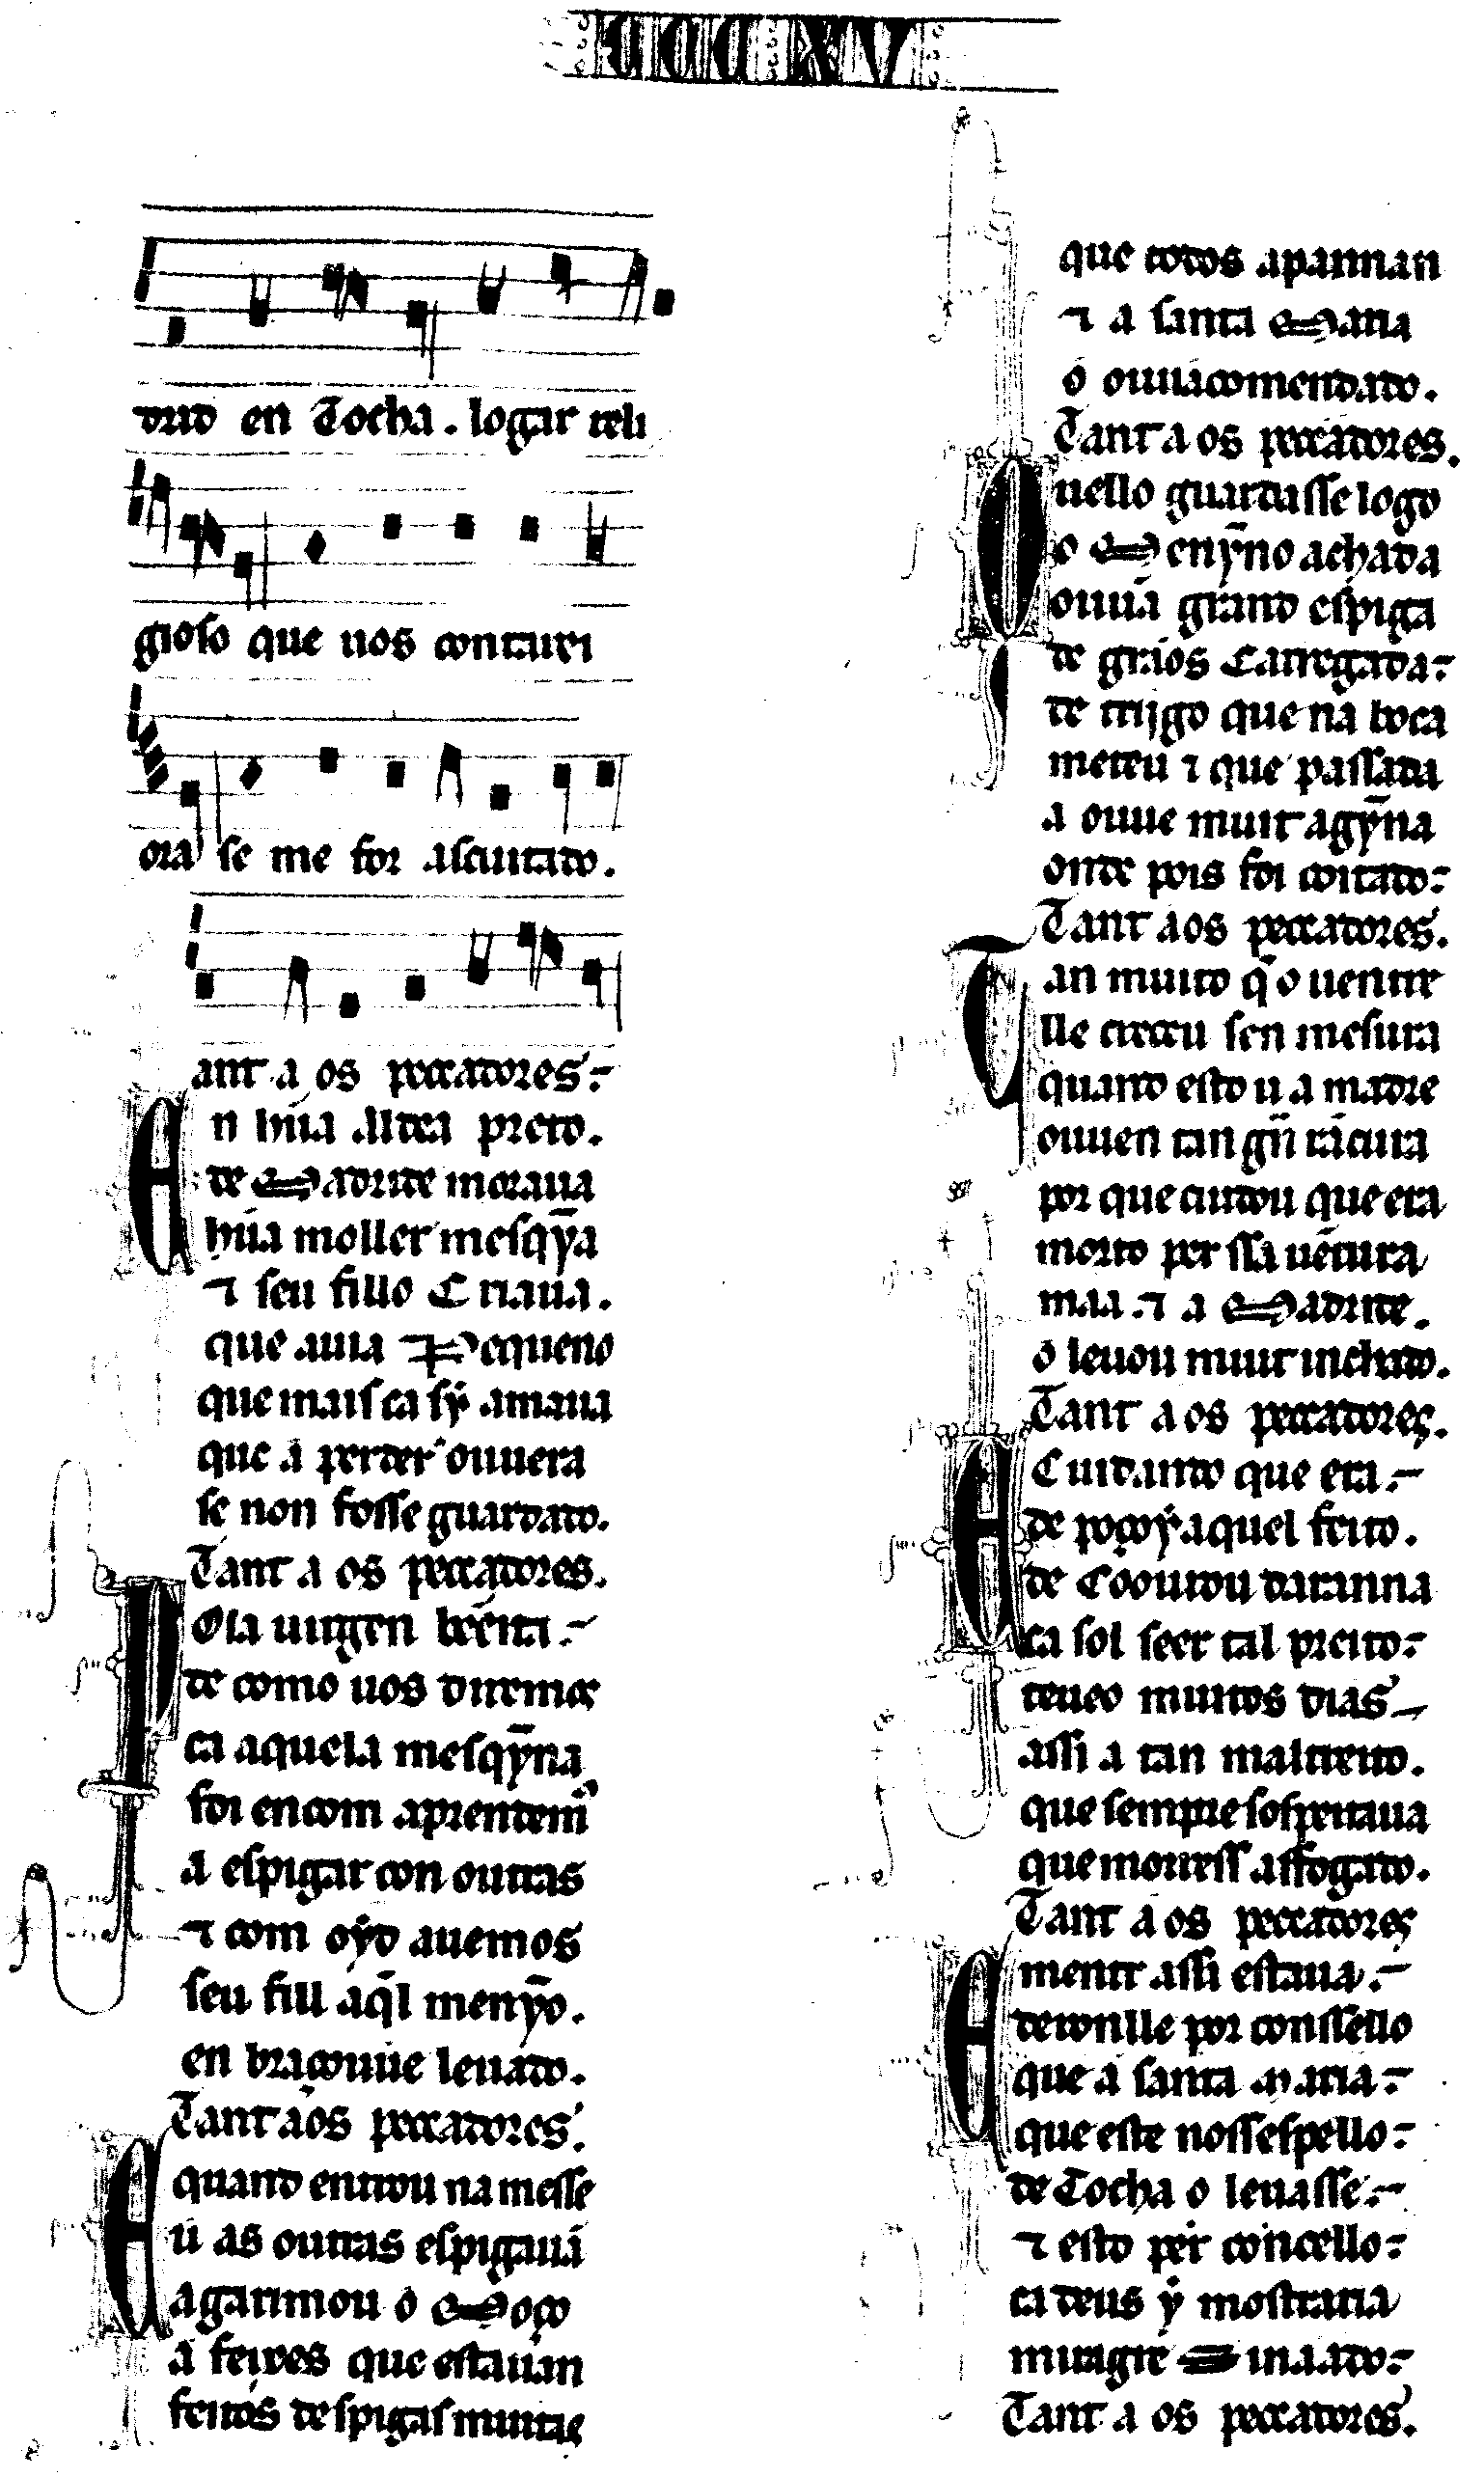 CCCXV
drid en Tocha. logar reli
gioso que uos contarei
ora se me for ascuitado.
ant a os peccadores:-
n hũa aldea preto.
de Madride moraua
hũa moller mesqỹa
⁊ seu fillo Criaua.
que auia Pequeno
que mais ca sý amaua
que a perder ouuera
se non fosse guardado.
Tant a os peccadores.
Ola uirgen bẽeita.-
de como uos diremos
ca aquela mesqỹna
foi en com aprendem̃
a espigar con outras
⁊ com oýd auemos
seu fill aq̃l menỹo.
en braçouue leuado.
Tant aos peccadores.
quand entrou na messe
u as outras espigauã
agarimou o Moço
a feixes que estauan
feitos despigas muitas
que todos apannan
⁊ a santa Maria
o ouuacomendado.
Tant a os peccadores.
uello guardasse logo
o Menỹno achada
ouuã grand espiga
de grãos Carregada:-
de triigo que na boca
meteu ⁊ que passada
a ouue muit agỹna
onde pois foi coitado:-
Tant aos peccadores.
an muito q̃ o uentre
lle creceu sen mesura
quando esto u a madre
ouuen tan gñ rãcura
por que cuidou que era
morto per ssa uẽtura
maa.⁊ a Madride.
o leuou muit inchado.
Tant a os peccadores.
Cuidando que era.-
de poçoý aquel feito.
de Coouro u daranna
ca sol seer tal preito:-
teueo muitos dias-
assi a tan maltreito.
que sempre sospeitaua
que morress affogado.
Tant a os peccadores
mentr assi estaua.-
deronlle por conssello
que a santa Maria:-
que este nossespello:-
de Tocha o leuasse.-
⁊ esto per concello:-
ca deus ý mostraria
miragre Sinaado:-
Tant a os peccadores.